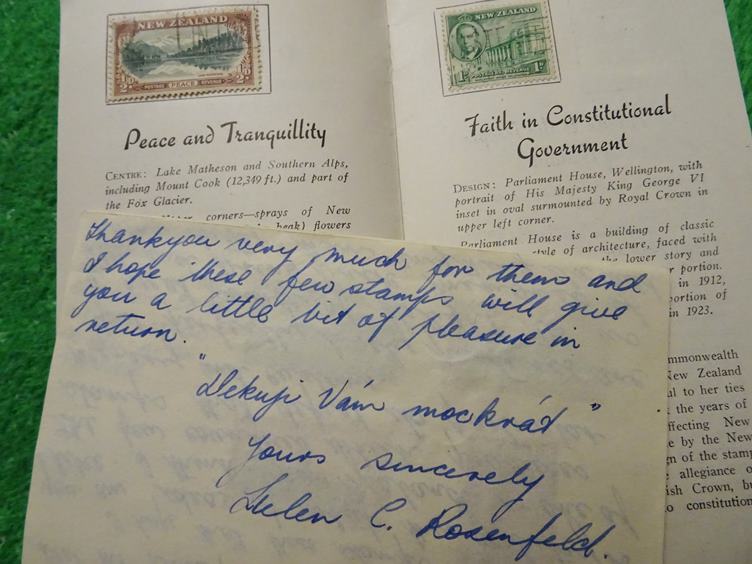 NEW ZEALAND
½D
½D
POSTAGE PEACE REVENUE
Peace and Tranquillity
CENTRE: Lake Matheson and Southern Alps,
including Mount Cook (12,349 ft.) and part of
the Fox Glacier.
corners—sprays of New
beak) flowers
NEW ZEALAND
1D
1D
POSTAGE & REVENUE
Faith in Constitutional
Government
DESIGN: Parliament House, Wellington, with
portrait of His Majesty King George VI
inset in oval surmounted by Royal Crown in
upper left corner.
Parliament House is a building of classic
style of architecture, faced with
the lower story and
portion.
in 1912,
portion of
in 1923.
Commonwealth
New Zealand
to her ties
the years of
affecting New
by the New
of the stamp
allegiance
Crown,
constitution
Thankyou very much for them and
I hope these few stamps will give
you a little bit of pleasure in
return.
"Dekuji Vám mockrát"
Yours sincerely
Helen C. Rosenfeld.